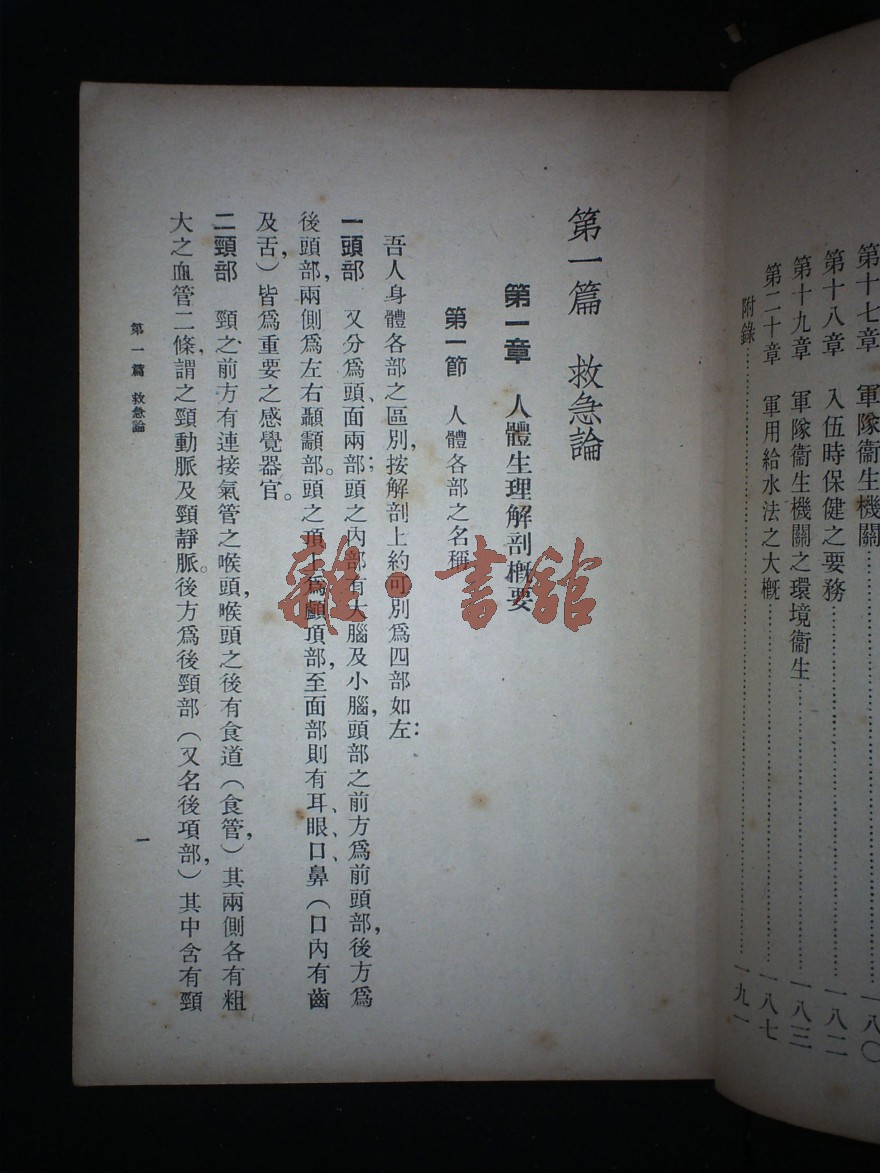 第十七章　軍隊衞生機關……一八〇
第十八章　入伍時保健之要務……一八二
第十九章　軍隊衞生機關之環境衞生……一八三
第二十章　軍用給水法之大槪……一八七
附錄……一九一
第一篇　救急論
第一章　人體生理解剖槪要
第一節　人體各部之名稱
吾人身體各部之區別，按解剖上約可別爲四部如左：
一頭部　又分爲頭、面兩部；頭之內部有大腦及小腦，頭部之前方爲前頭部，後方爲
後頭部，兩側爲左右顳顬部。頭之頂上爲顱頂部，至面部則有耳、眼、口、鼻（口內有齒
及舌，）皆爲重要之感覺器官。
二頸部　頸之前方有連接氣管之喉頭，喉頭之後有食道（食管，）其兩側各有粗
大之血管二條，謂之頸動脈及頸靜脈。後方爲後頸部（又名後項部，）其中含有頸
第一篇　救急論
一
雜·書館